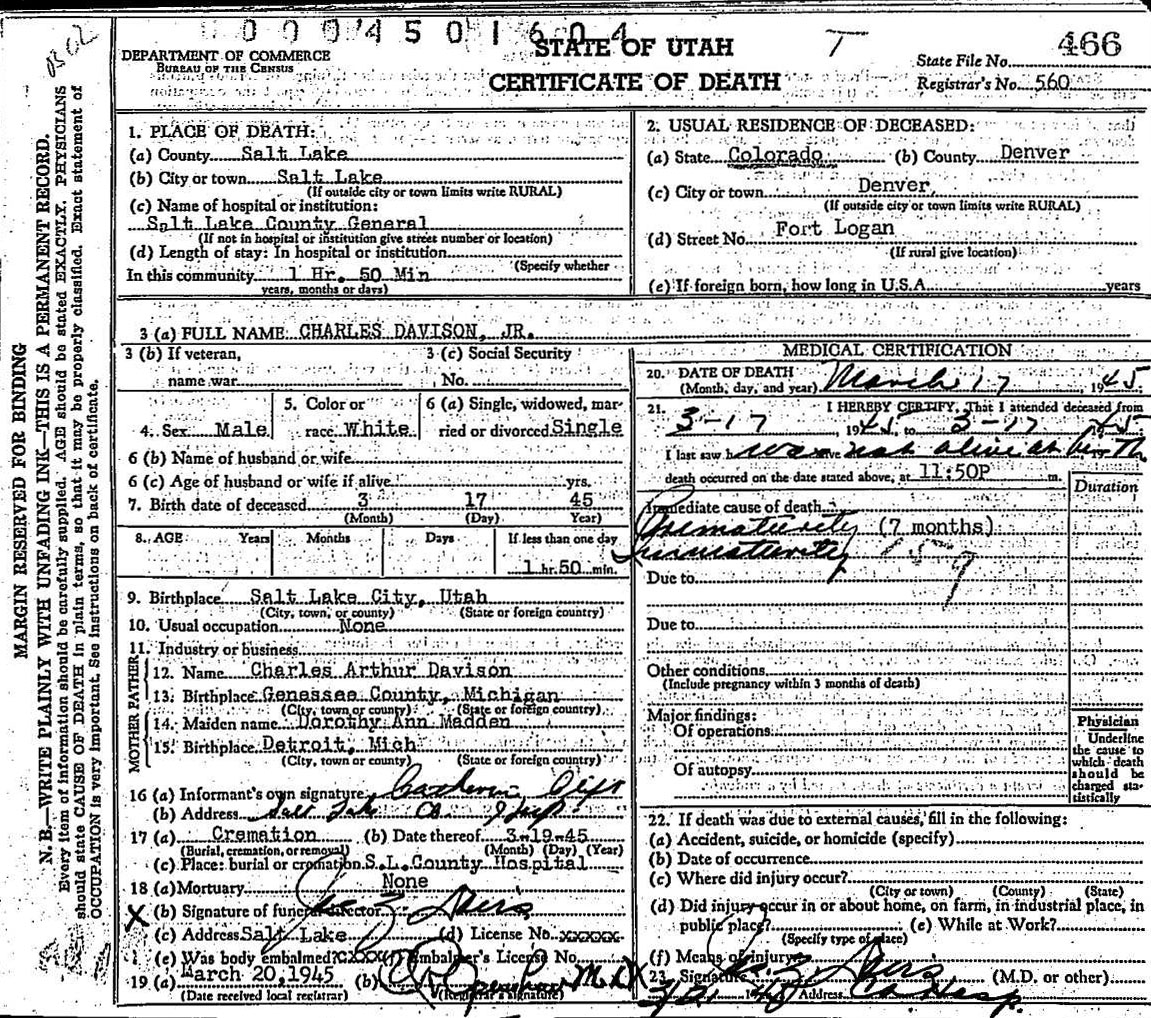 0004501604
STATE OF UTAH
T
466
DEPARTMENT OF COMMERCE
BUREAU OF THE CENSUS
CERTIFICATE OF DEATH
State File No.
Registrar's No. 560
0302
MARGIN RESERVED FOR BINDING
N. B.—WRITE PLAINLY WITH UNFADING INK—THIS IS A PERMANENT RECORD.
Every item of information should be carefully supplied. AGE should be stated EXACTLY. PHYSICIANS
should state CAUSE OF DEATH in plain terms, so that it may be properly classified. Exact statement of
OCCUPATION is very important. See instructions on back of certificate.
1. PLACE OF DEATH:
(a) County Salt Lake
(b) City or town Salt Lake
(If outside city or town limits write RURAL)
(c) Name of hospital or institution:
Salt Lake County General
(If not in hospital or institution give street number or location)
(d) Length of stay: In hospital or institution
(Specify whether
In this community 1 Hr. 50 Min
years, months or days)
2. USUAL RESIDENCE OF DECEASED:
(a) State Colorado (b) County Denver
(c) City or town Denver
(If outside city or town limits write RURAL)
(d) Street No. Fort Logan
(If rural give location)
(e) If foreign born, how long in U.S.A. years
3 (a) FULL NAME CHARLES DAVISON, JR.
3 (b) If veteran,
name war
3 (c) Social Security
No.
4. Sex Male
5. Color or
race White
6 (a) Single, widowed, mar-
ried or divorced Single
6 (b) Name of husband or wife
6 (c) Age of husband or wife if alive yrs.
7. Birth date of deceased 3 17 45
(Month) (Day) Year)
8. AGE Years Months Days If less than one day
1 hr. 50 min.
9. Birthplace Salt Lake City, Utah
(City, town, or county) (State or foreign country)
10. Usual occupation None
11. Industry or business
FATHER
12. Name Charles Arthur Davison
13. Birthplace Genessee County, Michigan
(City, town or county) (State or foreign country)
MOTHER
14. Maiden name Dorothy Ann Madden
15. Birthplace Detroit, Mich
(City, town or county) (State or foreign country)
16 (a) Informant's own signature
(b) Address Salt Lake Co. Hosp.
17 (a) Cremation (b) Date thereof 3-19-45
(Burial, cremation, or removal) (Month) (Day) (Year)
(c) Place: burial or cremation S.L. County Hospital
18 (a) Mortuary None
X (b) Signature of funeral director
(c) Address Salt Lake (d) License No. xxxxx
(e) Was body embalmed? (f) Embalmer's License No.
19 (a) March 20, 1945 (b) M.D.
(Date received local registrar) (Registrar's signature)
MEDICAL CERTIFICATION
20. DATE OF DEATH
(Month, day, and year) March 17, 1945
21. I HEREBY CERTIFY, That I attended deceased from
3-17 1945, to 3-17 1945
I last saw h was not alive at birth
death occurred on the date stated above, at 11:50P m.
Duration
Immediate cause of death
Prematurity (7 months)
Immaturity 159
Due to
Due to
Other conditions
(Include pregnancy within 3 months of death)
Major findings:
Of operations
Of autopsy
Physician
Underline
the cause to
which death
should be
charged sta-
tistically
22. If death was due to external causes, fill in the following:
(a) Accident, suicide, or homicide (specify)
(b) Date of occurrence
(c) Where did injury occur?
(City or town) (County) (State)
(d) Did injury occur in or about home, on farm, in industrial place, in
public place? (e) While at Work?
(Specify type of place)
(f) Means of injury
23. Signature (M.D. or other)
Address Co Hosp.